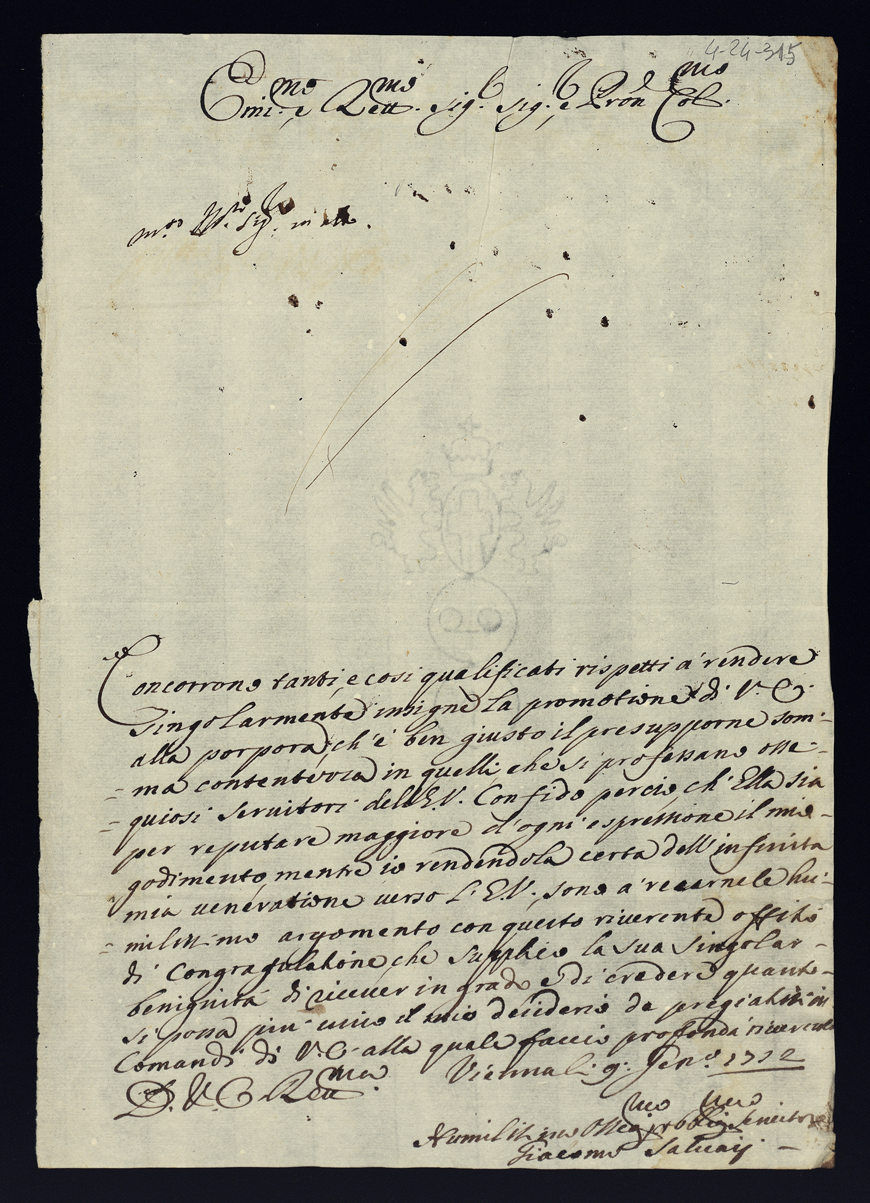 4-24-315
Em.mo e Rev.mo Sig.r Sig.r e Pron Col.mo
Concorrono tanti, e così qualificati rispetti à rendere
singolarmente insigne la promotione di V. E.
alla porpora, ch'è ben giusto il presupporne som=
=ma contentezza in quelli, che si professano osse=
=quiosi servitori dell'E.V. Confido perciò, ch'Ella sia
per reputare maggiore d'ogni espressione il mio
godimento, mentre io rendendola certa dell'infinita
mia veneratione verso l'E.V., sono à recarnele hu=
=milissimo argomento con questo riverente offitio
di Congratulatione, che supplico la sua singolar
benignità di ricever in grado, e di credere quanto
si possa più vivo il mio desiderio de pregiatissimi
Comandi di V.E. alla quale faccio profonda riverenza
D. V. E. Rev.ma Vienna li 9: Gen.o 1712
Humilissimo Osseq.mo Oblig.mo Servitore
Giacomo